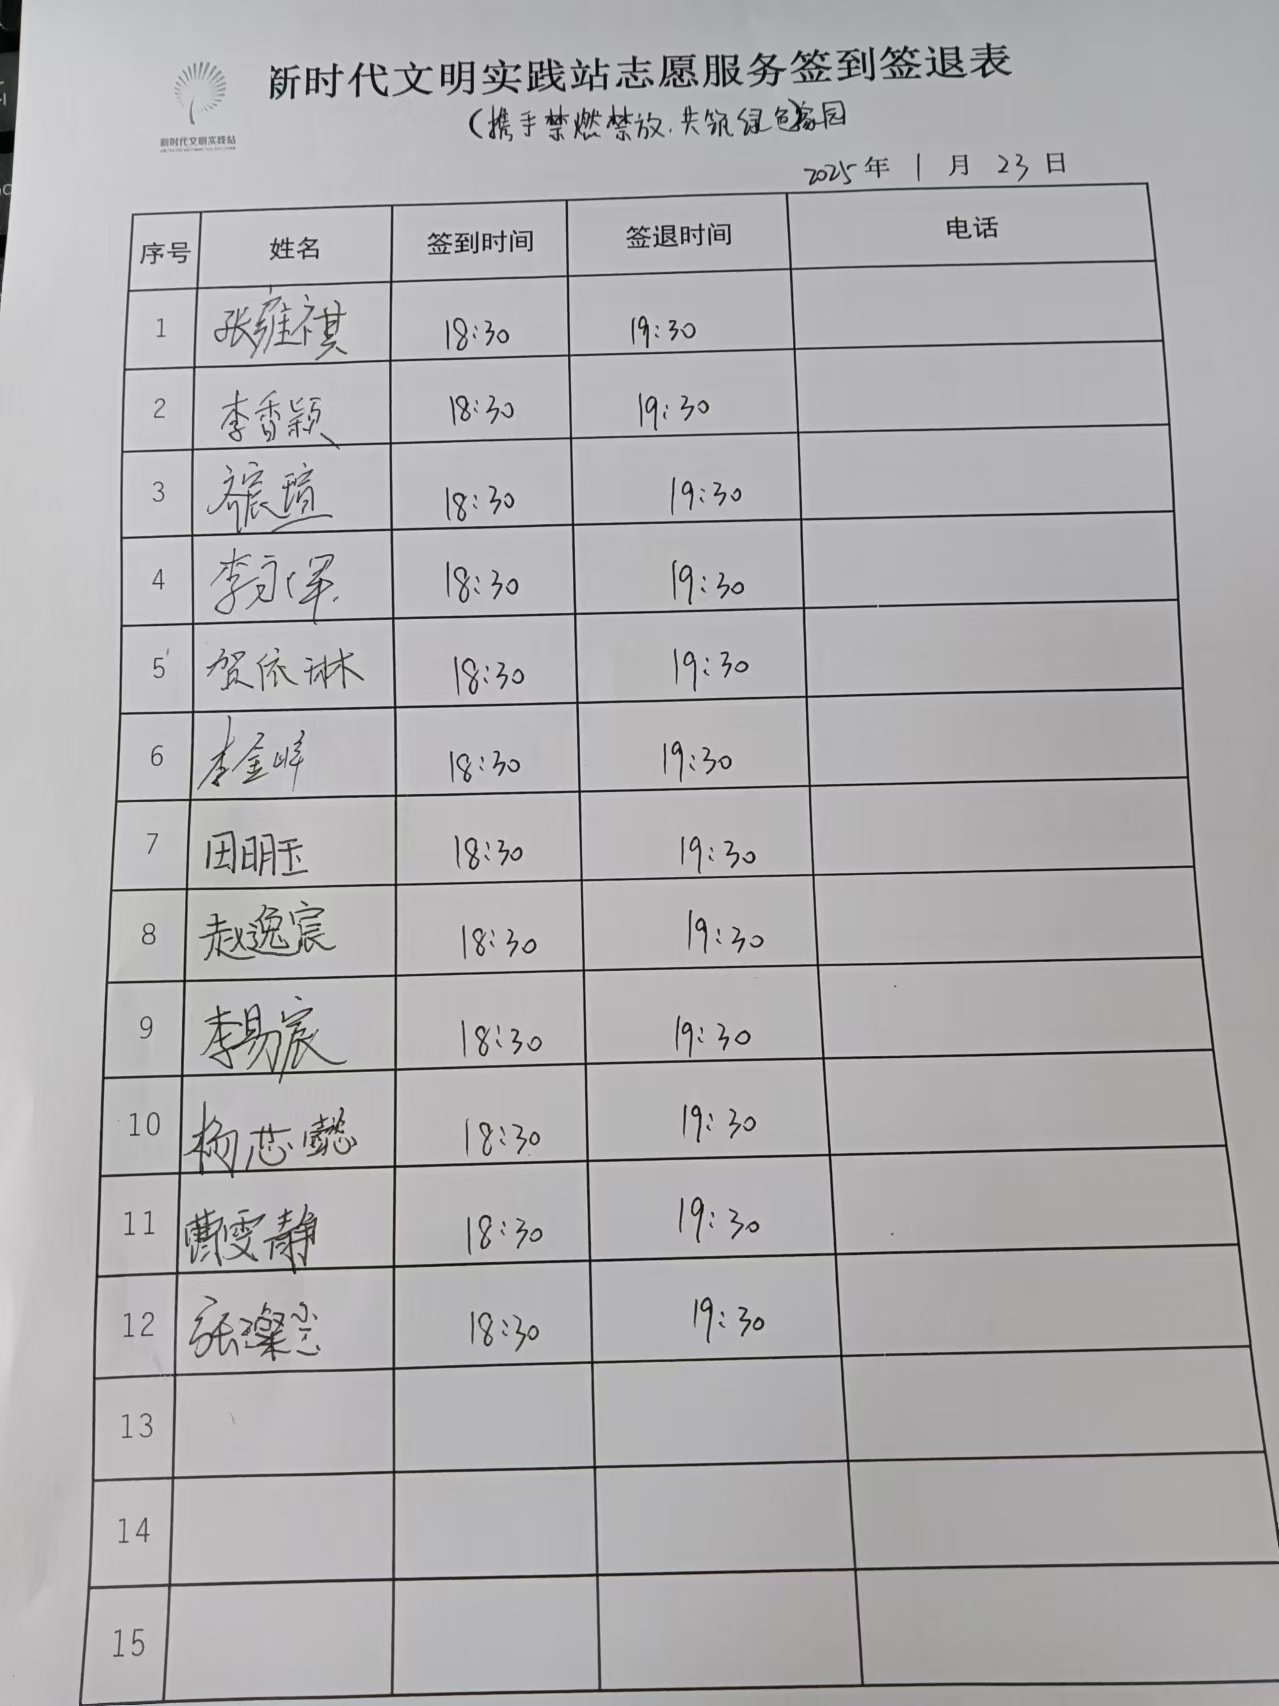 新时代文明实践站志愿服务签到签退表
(携手禁燃禁放.共筑绿色家园
新时代文明实践站
2025年 1 月 23 日
序号 姓名 签到时间 签退时间 电话
1 张雍祺 18:30 19:30
2 李香颖 18:30 19:30
3 宸瑄 18:30 19:30
4 李 18:30 19:30
5 贺依琳 18:30 19:30
6 李金峰 18:30 19:30
7 田明玉 18:30 19:30
8 赵逸宸 18:30 19:30
9 李易宸 18:30 19:30
10 杨芯懿 18:30 19:30
11 曹雯静 18:30 19:30
12 张璨 18:30 19:30
13
14
15